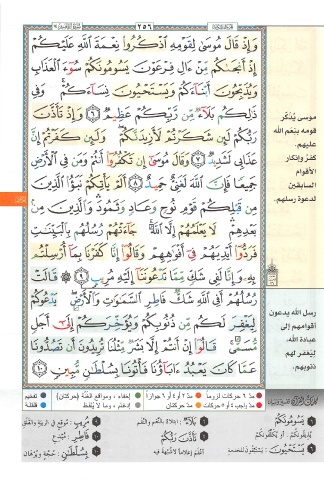 ٢٥٦
وَإِذْ قَالَ مُوسَىٰ لِقَوْمِهِ اذْكُرُوا نِعْمَةَ اللَّهِ عَلَيْكُمْ
إِذْ أَنجَىٰكُم مِّنْ ءَالِ فِرْعَوْنَ يَسُومُونَكُمْ سُوٓءَ الْعَذَابِ
وَيُذَبِّحُونَ أَبْنَآءَكُمْ وَيَسْتَحْيُونَ نِسَآءَكُمْ وَفِى
ذَٰلِكُم بَلَآءٌ مِّن رَّبِّكُمْ عَظِيمٌ ٦ وَإِذْ تَأَذَّنَ
رَبُّكُمْ لَئِن شَكَرْتُمْ لَأَزِيدَنَّكُمْ وَلَئِن كَفَرْتُمْ إِنَّ
عَذَابِى لَشَدِيدٌ ٧ وَقَالَ مُوسَىٰٓ إِن تَكْفُرُوٓا أَنتُمْ وَمَن فِى الْأَرْضِ
جَمِيعًا فَإِنَّ اللَّهَ لَغَنِىٌّ حَمِيدٌ ٨ أَلَمْ يَأْتِكُمْ نَبَؤُا الَّذِينَ
مِن قَبْلِكُمْ قَوْمِ نُوحٍ وَعَادٍ وَثَمُودَ وَالَّذِينَ مِن
بَعْدِهِمْ لَا يَعْلَمُهُمْ إِلَّا اللَّهُ جَآءَتْهُمْ رُسُلُهُم بِالْبَيِّنَٰتِ
فَرَدُّوٓا أَيْدِيَهُمْ فِىٓ أَفْوَٰهِهِمْ وَقَالُوٓا إِنَّا كَفَرْنَا بِمَآ أُرْسِلْتُم
بِهِ وَإِنَّا لَفِى شَكٍّ مِّمَّا تَدْعُونَنَآ إِلَيْهِ مُرِيبٍ ٩ قَالَتْ
رُسُلُهُمْ أَفِى اللَّهِ شَكٌّ فَاطِرِ السَّمَٰوَٰتِ وَالْأَرْضِ يَدْعُوكُمْ
لِيَغْفِرَ لَكُم مِّن ذُنُوبِكُمْ وَيُؤَخِّرَكُمْ إِلَىٰٓ أَجَلٍ
مُّسَمًّى قَالُوٓا إِنْ أَنتُمْ إِلَّا بَشَرٌ مِّثْلُنَا تُرِيدُونَ أَن تَصُدُّونَا
عَمَّا كَانَ يَعْبُدُ ءَابَآؤُنَا فَأْتُونَا بِسُلْطَٰنٍ مُّبِينٍ ١٠
موسى يُذكّر
قومه بنعم الله
عليهم.
كفرُ وإنكار
الأقوام
السابقين
لدعوة رسلهم.
رسل الله يدعون
أقوامهم إلى
عبادة الله،
ليغفر لهم
ذنوبهم.
يَسُومُونَكُمْ
يَسْتَحْيُونَ
بَلَآءٌ
تَأَذَّنَ رَبُّكُمْ
مُرِيبٍ
فَاطِرِ
بِسُلْطَٰنٍ